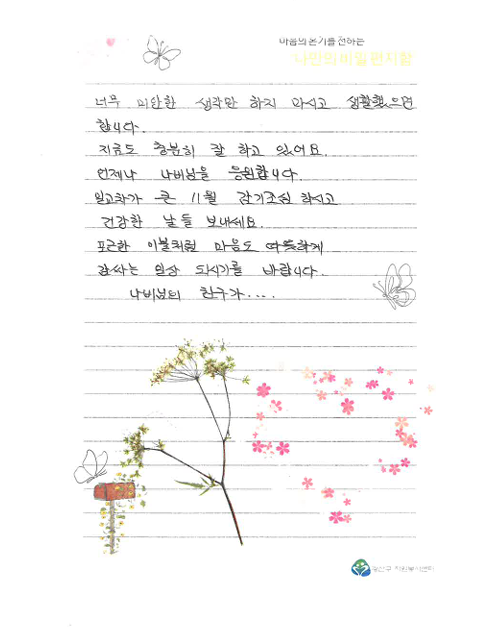 마음의 온기를 전하는
나만의 비밀 편지함
너무 미안한 생각만 하지 마시고 생활했으면
합니다.
지금도 충분히 잘 하고 있어요.
언제나 나비님을 응원합니다.
일교차가 큰 11월 감기조심 하시고
건강한 날들 보내세요.
포근한 이불처럼 마음도 따뜻하게
감싸는 일상 되시기를 바랍니다.
나비님의 친구가....
자원봉사센터